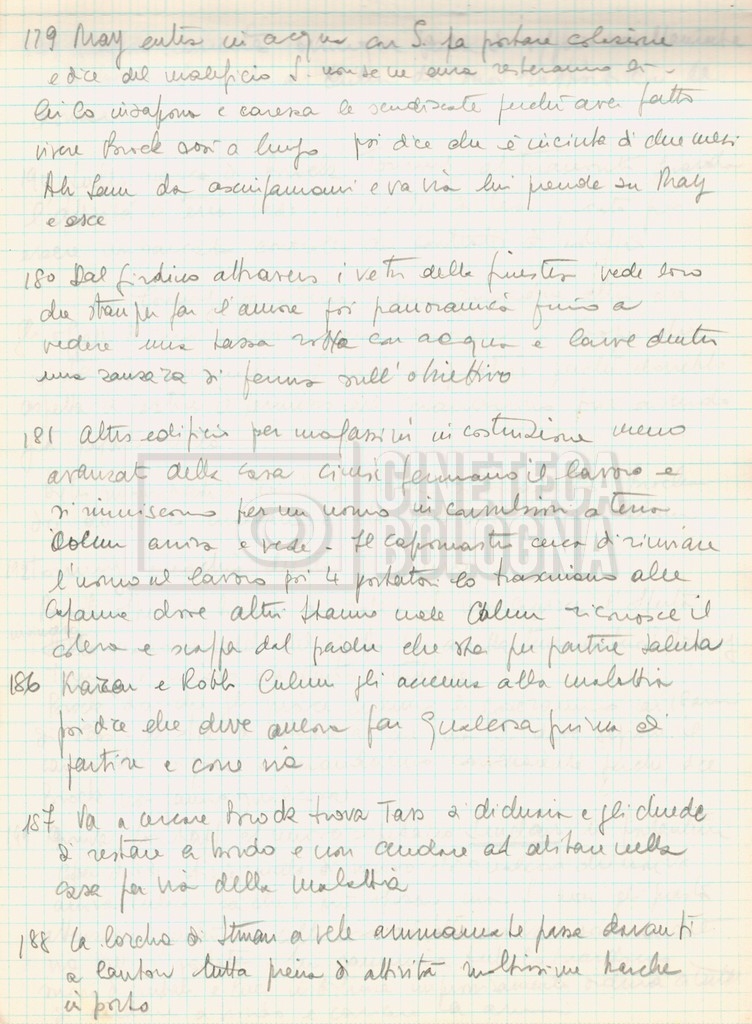 179 May entra in acqua con S. fa portare colazione
e dice del maleficio S. non se ne cura resteranno lì -
lui la insapona e caressa le perché aver fatto
vivere Brock così a lungo poi dice che è incinta di due mesi
Ah Sam da asciugamani e va via lui prende su May
e esce
180 Dal giardino attraverso i vetri della finestra vede loro
che stan per far l'amore poi panoramica fino a
vedere una tassa rotta con acqua e larve dentro
una zanzara si ferma sull'obiettivo
181 Altro edificio per magazzini in costruzione meno
avanzato della casa cinesi fermano il lavoro e
si riuniscono per un uomo in convulsioni a terra
Culum arriva e vede - Il capomastro cerca di rinviare
l'uomo al lavoro poi 4 portatori lo trascinano alle
capanne dove altri stanno male Culum riconosce il
colera e scappa dal padre che sta per partire saluta
186 e Robb Culum gli accenna alla malattia
poi dice che deve ancora far qualcosa prima di
partire e corre via
187 Va a cercare Brock trova Tess si dichiara e gli chiede
di restare a bordo e non andare ad abitare nella
casa per via della malattia
188 La lorcha di Struan a vele ammainate passa davanti
a Canton tutta piena di attività moltissime barche
in porto
CINETECA
BOLOGNA